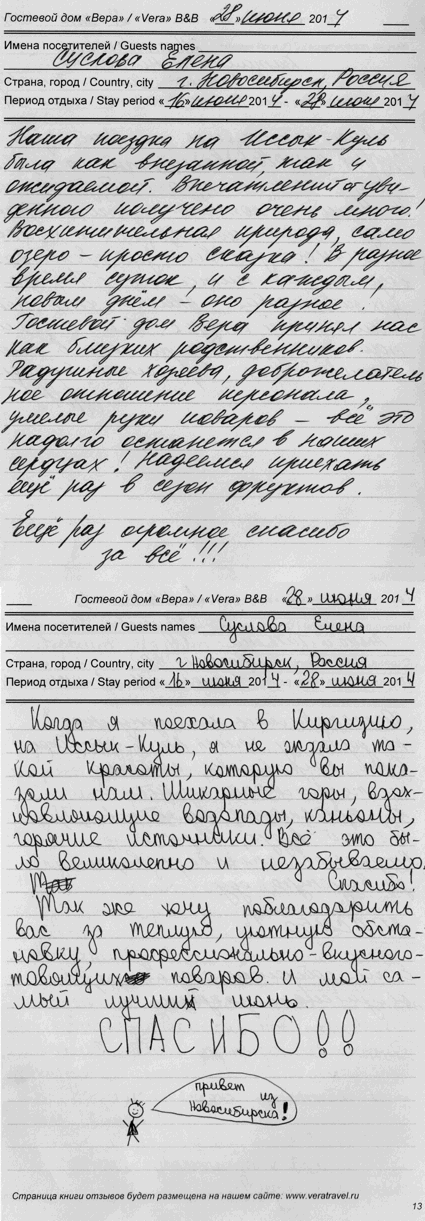 Гостевой дом «Вера» / «Vera» B&B «28» июня 2014
Имена посетителей / Guests names
Суслова Елена
Страна, город / Country, city г. Новосибирск, Россия
Период отдыха / Stay period «16» июня 2014 - «28» июня 2014
Наша поездка на Иссык-Куль
была как внезапной, так и
ожидаемой. Впечатлений от уви-
денного получено очень много!
Восхитительная природа, само
озеро - просто сказка! В разное
время суток, и с каждым,
новым днём - оно разное.
Гостевой дом Вера принял нас
как близких родственников.
Радушные хозяева, доброжелатель
ное отношение персонала,
умелые руки поваров - всё это
надолго останется в наших
сердцах! Надеемся приехать
ещё раз в сезон фруктов.
Ещё раз огромное спасибо
за всё!!!
Гостевой дом «Вера» / «Vera» B&B «28» июня 2014
Имена посетителей / Guests names Суслова Елена
Страна, город / Country, city г Новосибирск, Россия
Период отдыха / Stay period «16» июня 2014 - «28» июня 2014
Когда я поехала в Киргизию,
на Иссык-Куль, я не ждала та-
кой красоты, которую вы пока-
зали нам. Шикарные горы, вдох-
новляющие водопады, каньоны,
горячие источники. Всё это бы-
ло великолепно и незабываемо.
Спасибо!
Так же хочу поблагодарить
вас за теплую, уютную обста-
новку, профессионально-вкусного-
товящих поваров. И мой са-
мый лучший июнь.
СПАСИБО!!
привет
из
Новосибирска!
Страница книги отзывов будет размещена на нашем сайте: www.veratravel.ru
13